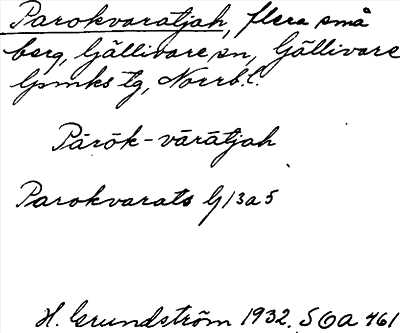 Parokvaratjah, flera små
berg, Gällivare sn, Gällivare
lpmks tg, Norrb.l.
Pārōk-vārātjah
Parokvarats G/3a5
H. Grundström 1932. SOA 461